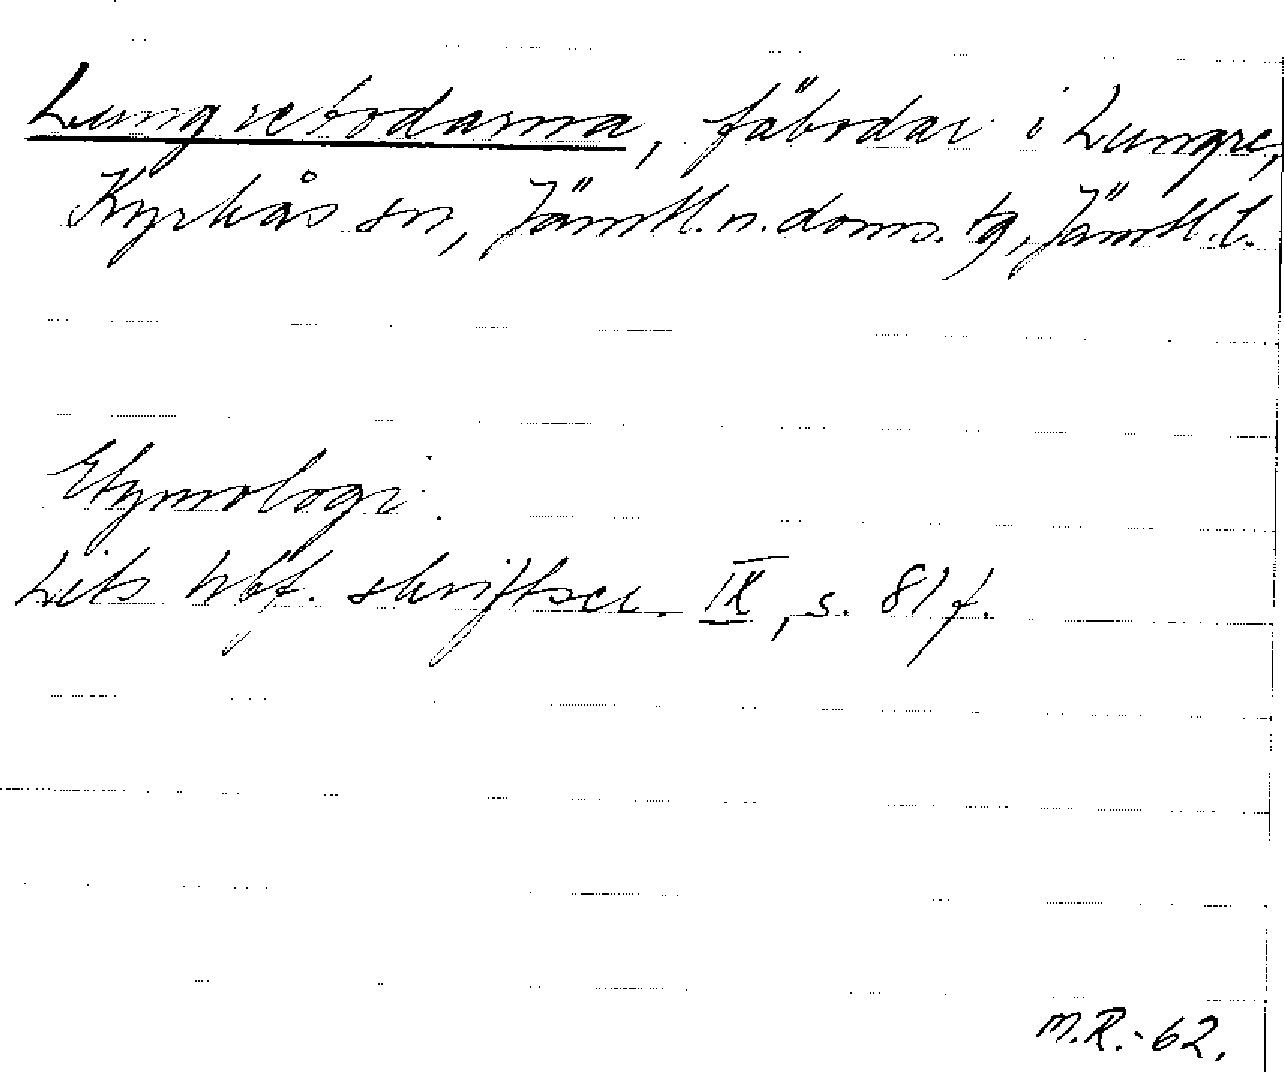 Lungrebodarna, fäbodar i Lungre,
Kyrkås sn, Jämtl. n. doms. tg, Jämtl. l.
Etymologi:
Lits hbf. skriftser. IX, s. 81 f.
M.R.-62.